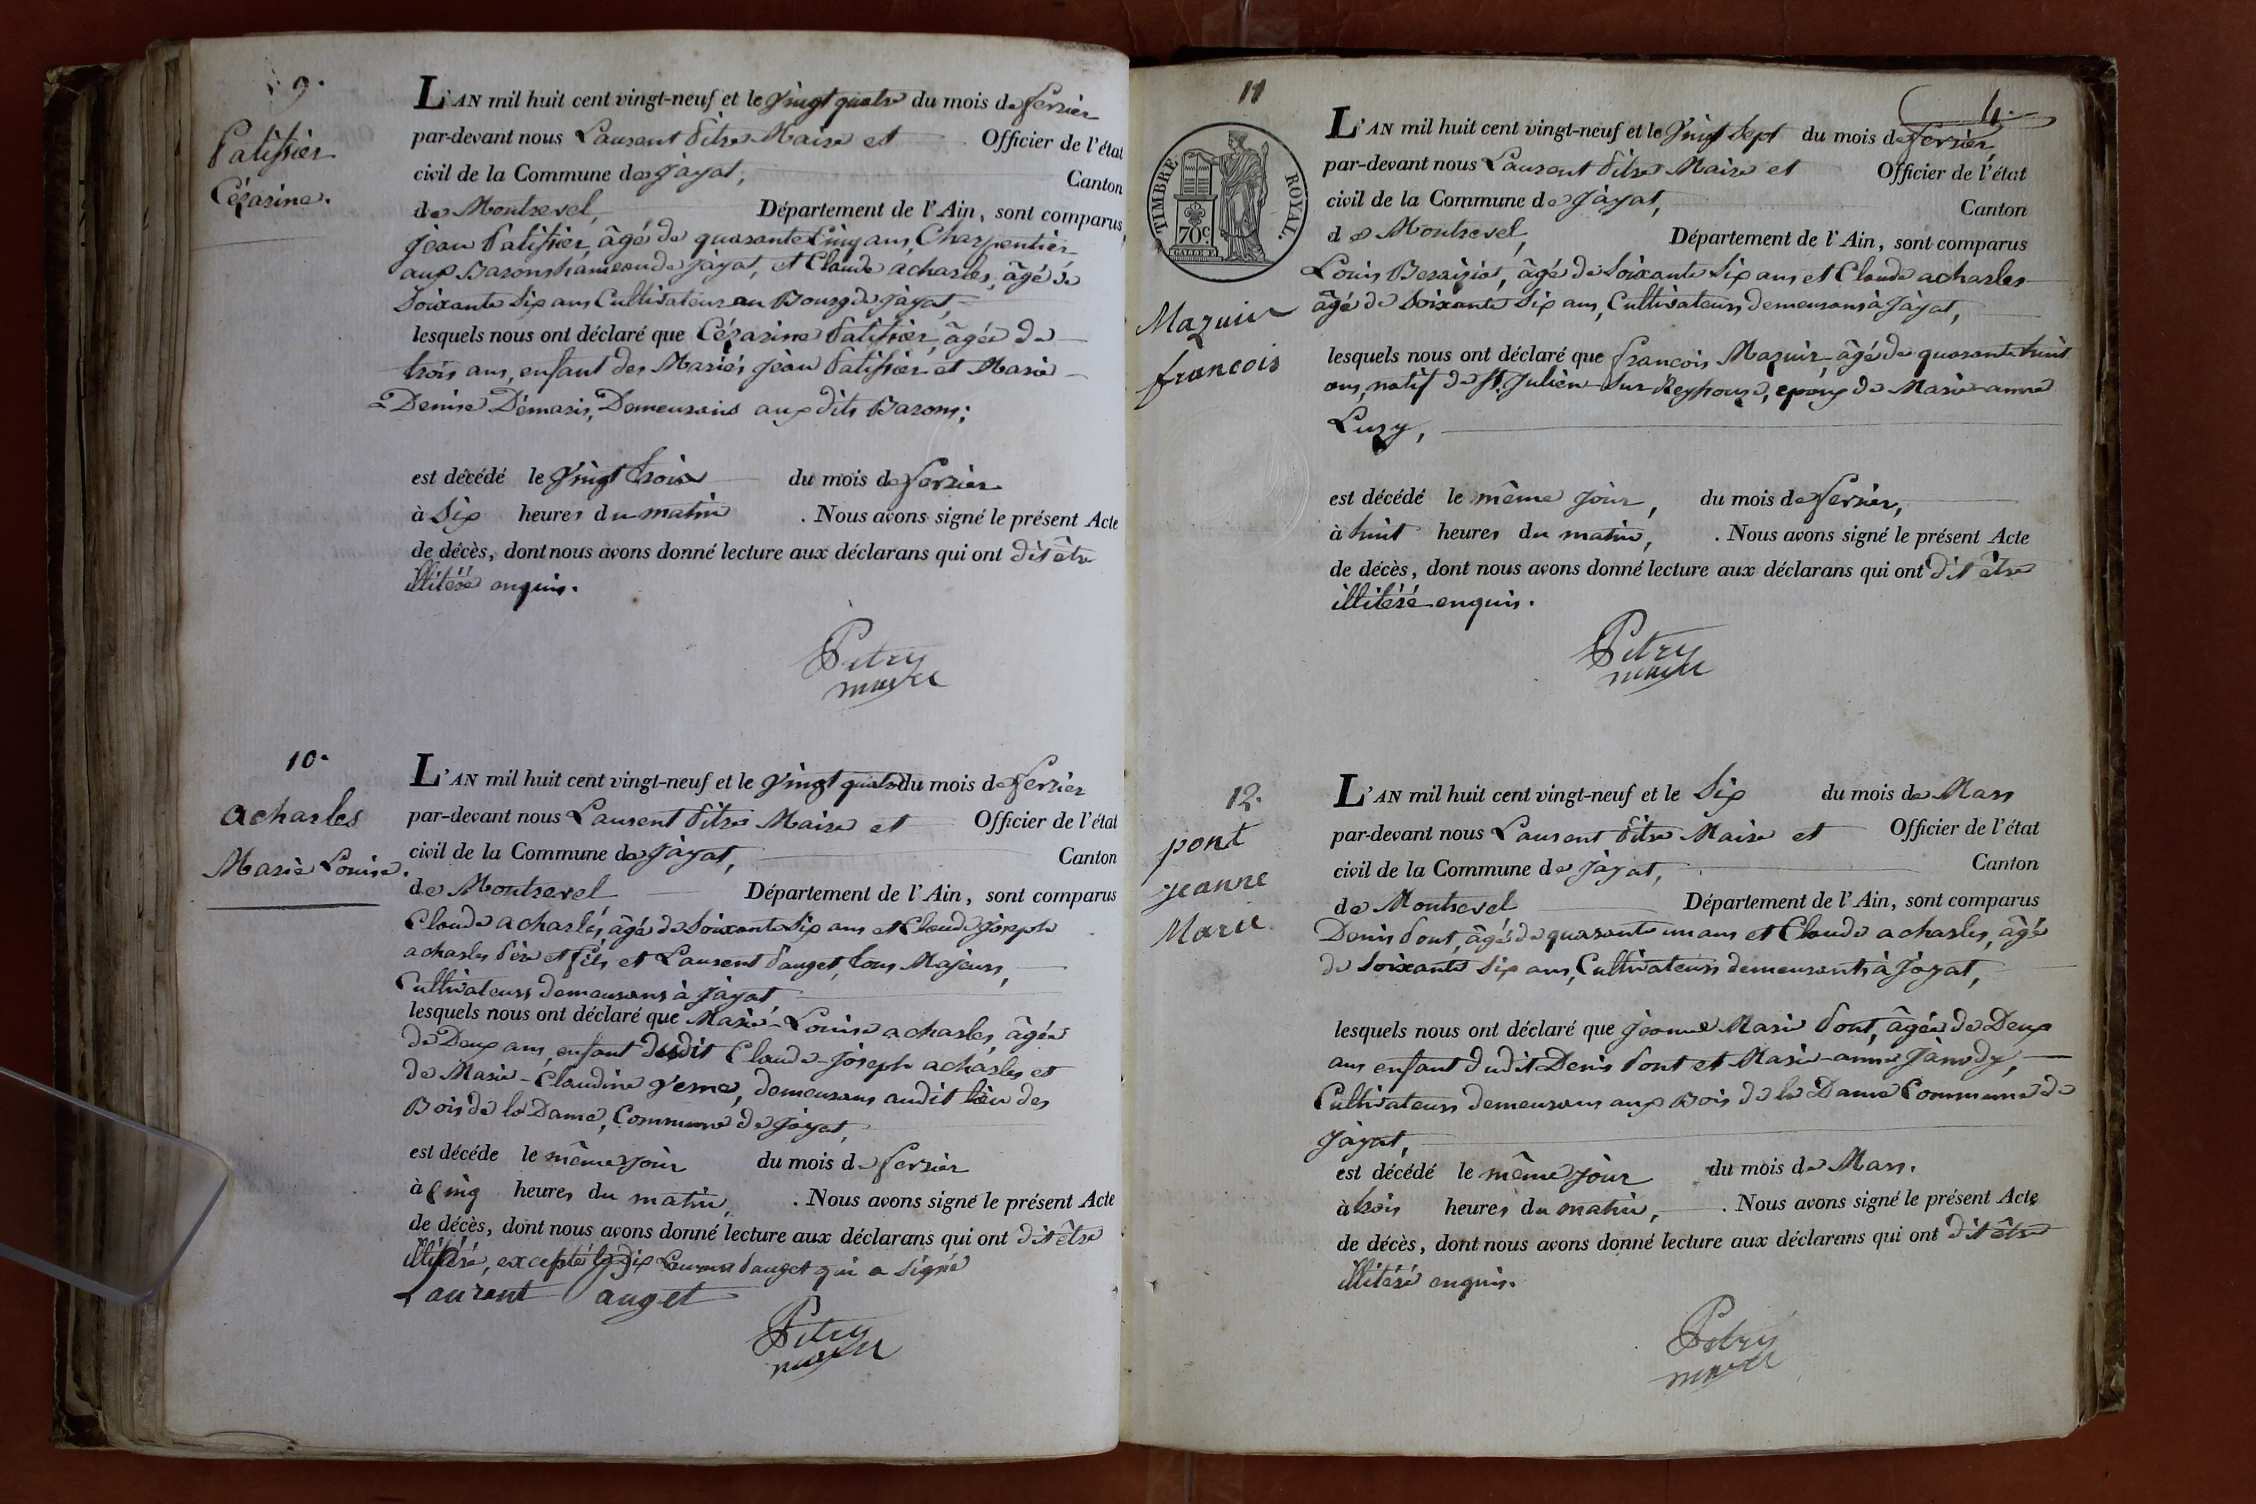 9.
Patissier
Cézarine.
L'AN mil huit cent vingt-neuf et le vingt quatre du mois de fevrier
par-devant nous Laurent Pitre Maire et Officier de l'état
civil de la Commune de Jayat, Canton
de Montrevel, Département de l'Ain, sont comparus,
Jean Patissier, âgé de quarante Cinq ans, Charpentier
aux Barons hameau de Jayat, et Claude acharles, âgé de
Soixante Six ans Cultivateur au Bourg de Jayat,
lesquels nous ont déclaré que Cézarine Patissier, âgée de
trois ans, enfant des Mariés Jean Patissier et Marie
Denise Démaris, Demeurans aux dits Barons;
est décédé le vingt trois du mois de fevrier
à Six heures du matin . Nous avons signé le présent Acte
de décès, dont nous avons donné lecture aux déclarans qui ont dit être
illitéré enquis.
Pitry
mayre
10.
acharles
Marie Louise.
L'AN mil huit cent vingt-neuf et le vingt quatre du mois de fevrier
par-devant nous Laurent Pitre Maire et Officier de l'état
civil de la Commune de Jayat, Canton
de Montrevel Département de l'Ain, sont comparus
Claude acharles, âgé de Soixante Six ans et Claude Joseph
acharles Père et fils et Laurent Pauget, tous Majeurs,
Cultivateurs demeurans à Jayat
lesquels nous ont déclaré que Marie-Louise acharles, âgée
de Deux ans, enfant dudit Claude-Joseph acharles et
de Marie-Claudine Verne, demeurans audit lieu des
Bois de la Dame, Commune de Jayat,
est décéde le même jour du mois de fevrier
à Cinq heures du matin, . Nous avons signé le présent Acte
de décès, dont nous avons donné lecture aux déclarans qui ont dit être
illitéré, excepté Laurent Pauget qui a Signé
Laurent Pauget
Pitry
mayre
11
4.
TIMBRE ROYAL.
70c
Mazuir
francois
L'AN mil huit cent vingt-neuf et le vingt Sept du mois de fevrier,
par-devant nous Laurent Pitre Maire et Officier de l'état
civil de la Commune de Jayat, Canton
de Montrevel, Département de l'Ain, sont comparus
Louis Beraiziat, âgé de Soixante Six ans et Claude acharles
âgé de Soixante Six ans, Cultivateurs demeurans à Jayat,
lesquels nous ont déclaré que francois Mazuir, âgé de quarante huit
ans, natif de St. Julien-Sur-Reyssouze, epoux de Marie-anne
Luzy,
est décédé le même jour, du mois de fevrier,
à huit heures du matin, . Nous avons signé le présent Acte
de décès, dont nous avons donné lecture aux déclarans qui ont dit être
illitéré enquis.
Pitry
mayre
12.
pont
jeanne
Marie
L'AN mil huit cent vingt-neuf et le Six du mois de Mars
par-devant nous Laurent Pitre Maire et Officier de l'état
civil de la Commune de Jayat, Canton
de Montrevel Département de l'Ain, sont comparus
Denis Pont, âgé de quarante un ans et Claude acharles, âgé
de Soixante Six ans, Cultivateurs demeurants à Jayat,
lesquels nous ont déclaré que Jeanne Marie Pont, âgée de Deux
ans enfant dudit Denis Pont et Marie-anne Janody,
Cultivateurs demeurans aux Bois de la Dame Commune de
Jayat,
est décédé le même jour du mois de Mars.
à trois heures du matin, . Nous avons signé le présent Acte
de décès, dont nous avons donné lecture aux déclarans qui ont dit être
illitéré enquis.
Pitry
mayre